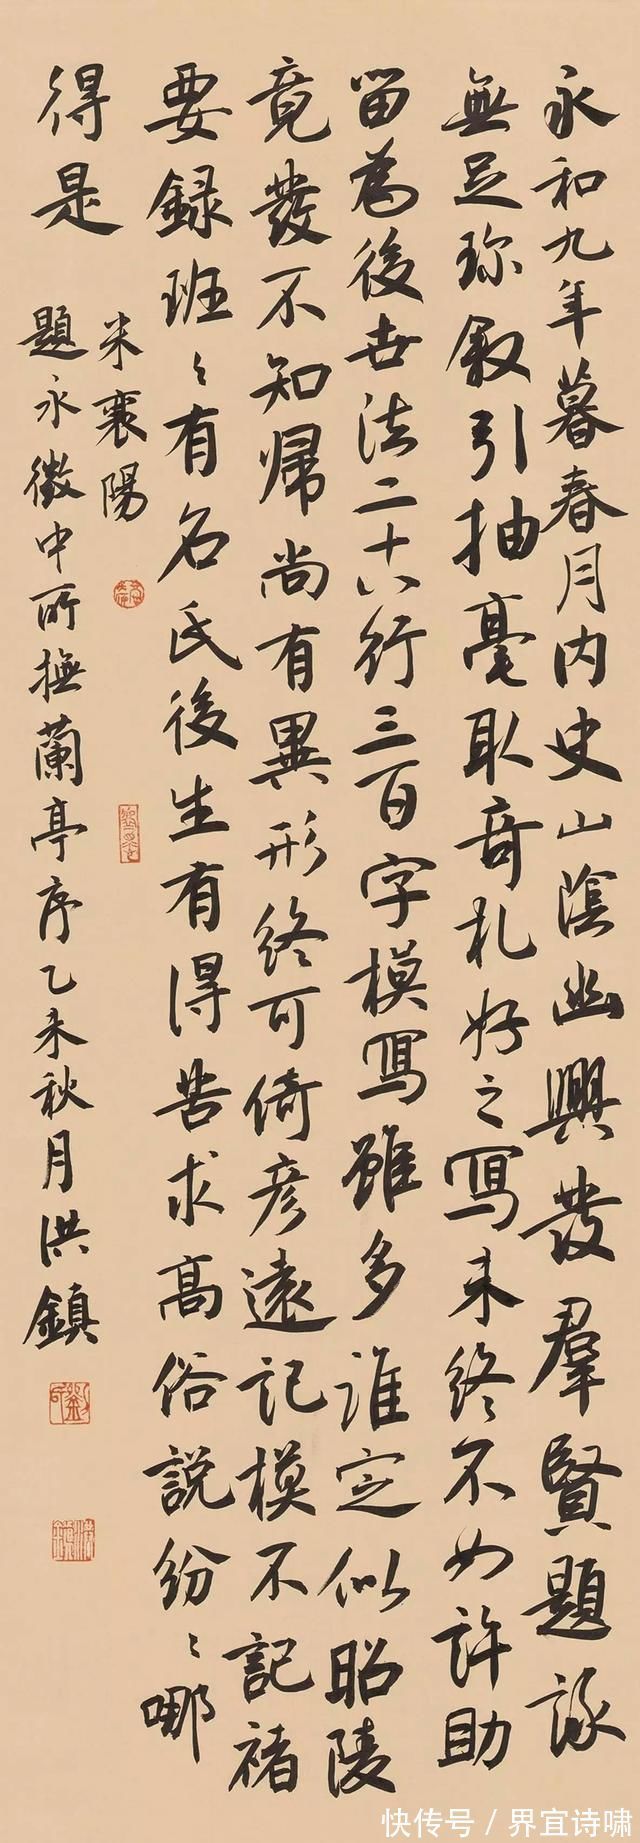 永和九年暮春月内史山陰幽興發羣賢題詠
無足珎叙引抽毫取奇札好之寫来終不如許助
留為後世法二十八行三百字模寫雖多誰定似昭陵
竟發不知歸尚有異形終可倚彦遠記模不記褚
要録班〻有名氏後生有得苦求高俗說紛〻哪
得是
米襄陽
題永徽中所撫蘭亭序乙未秋月洪鎮
快传号 / 界宜诗啸